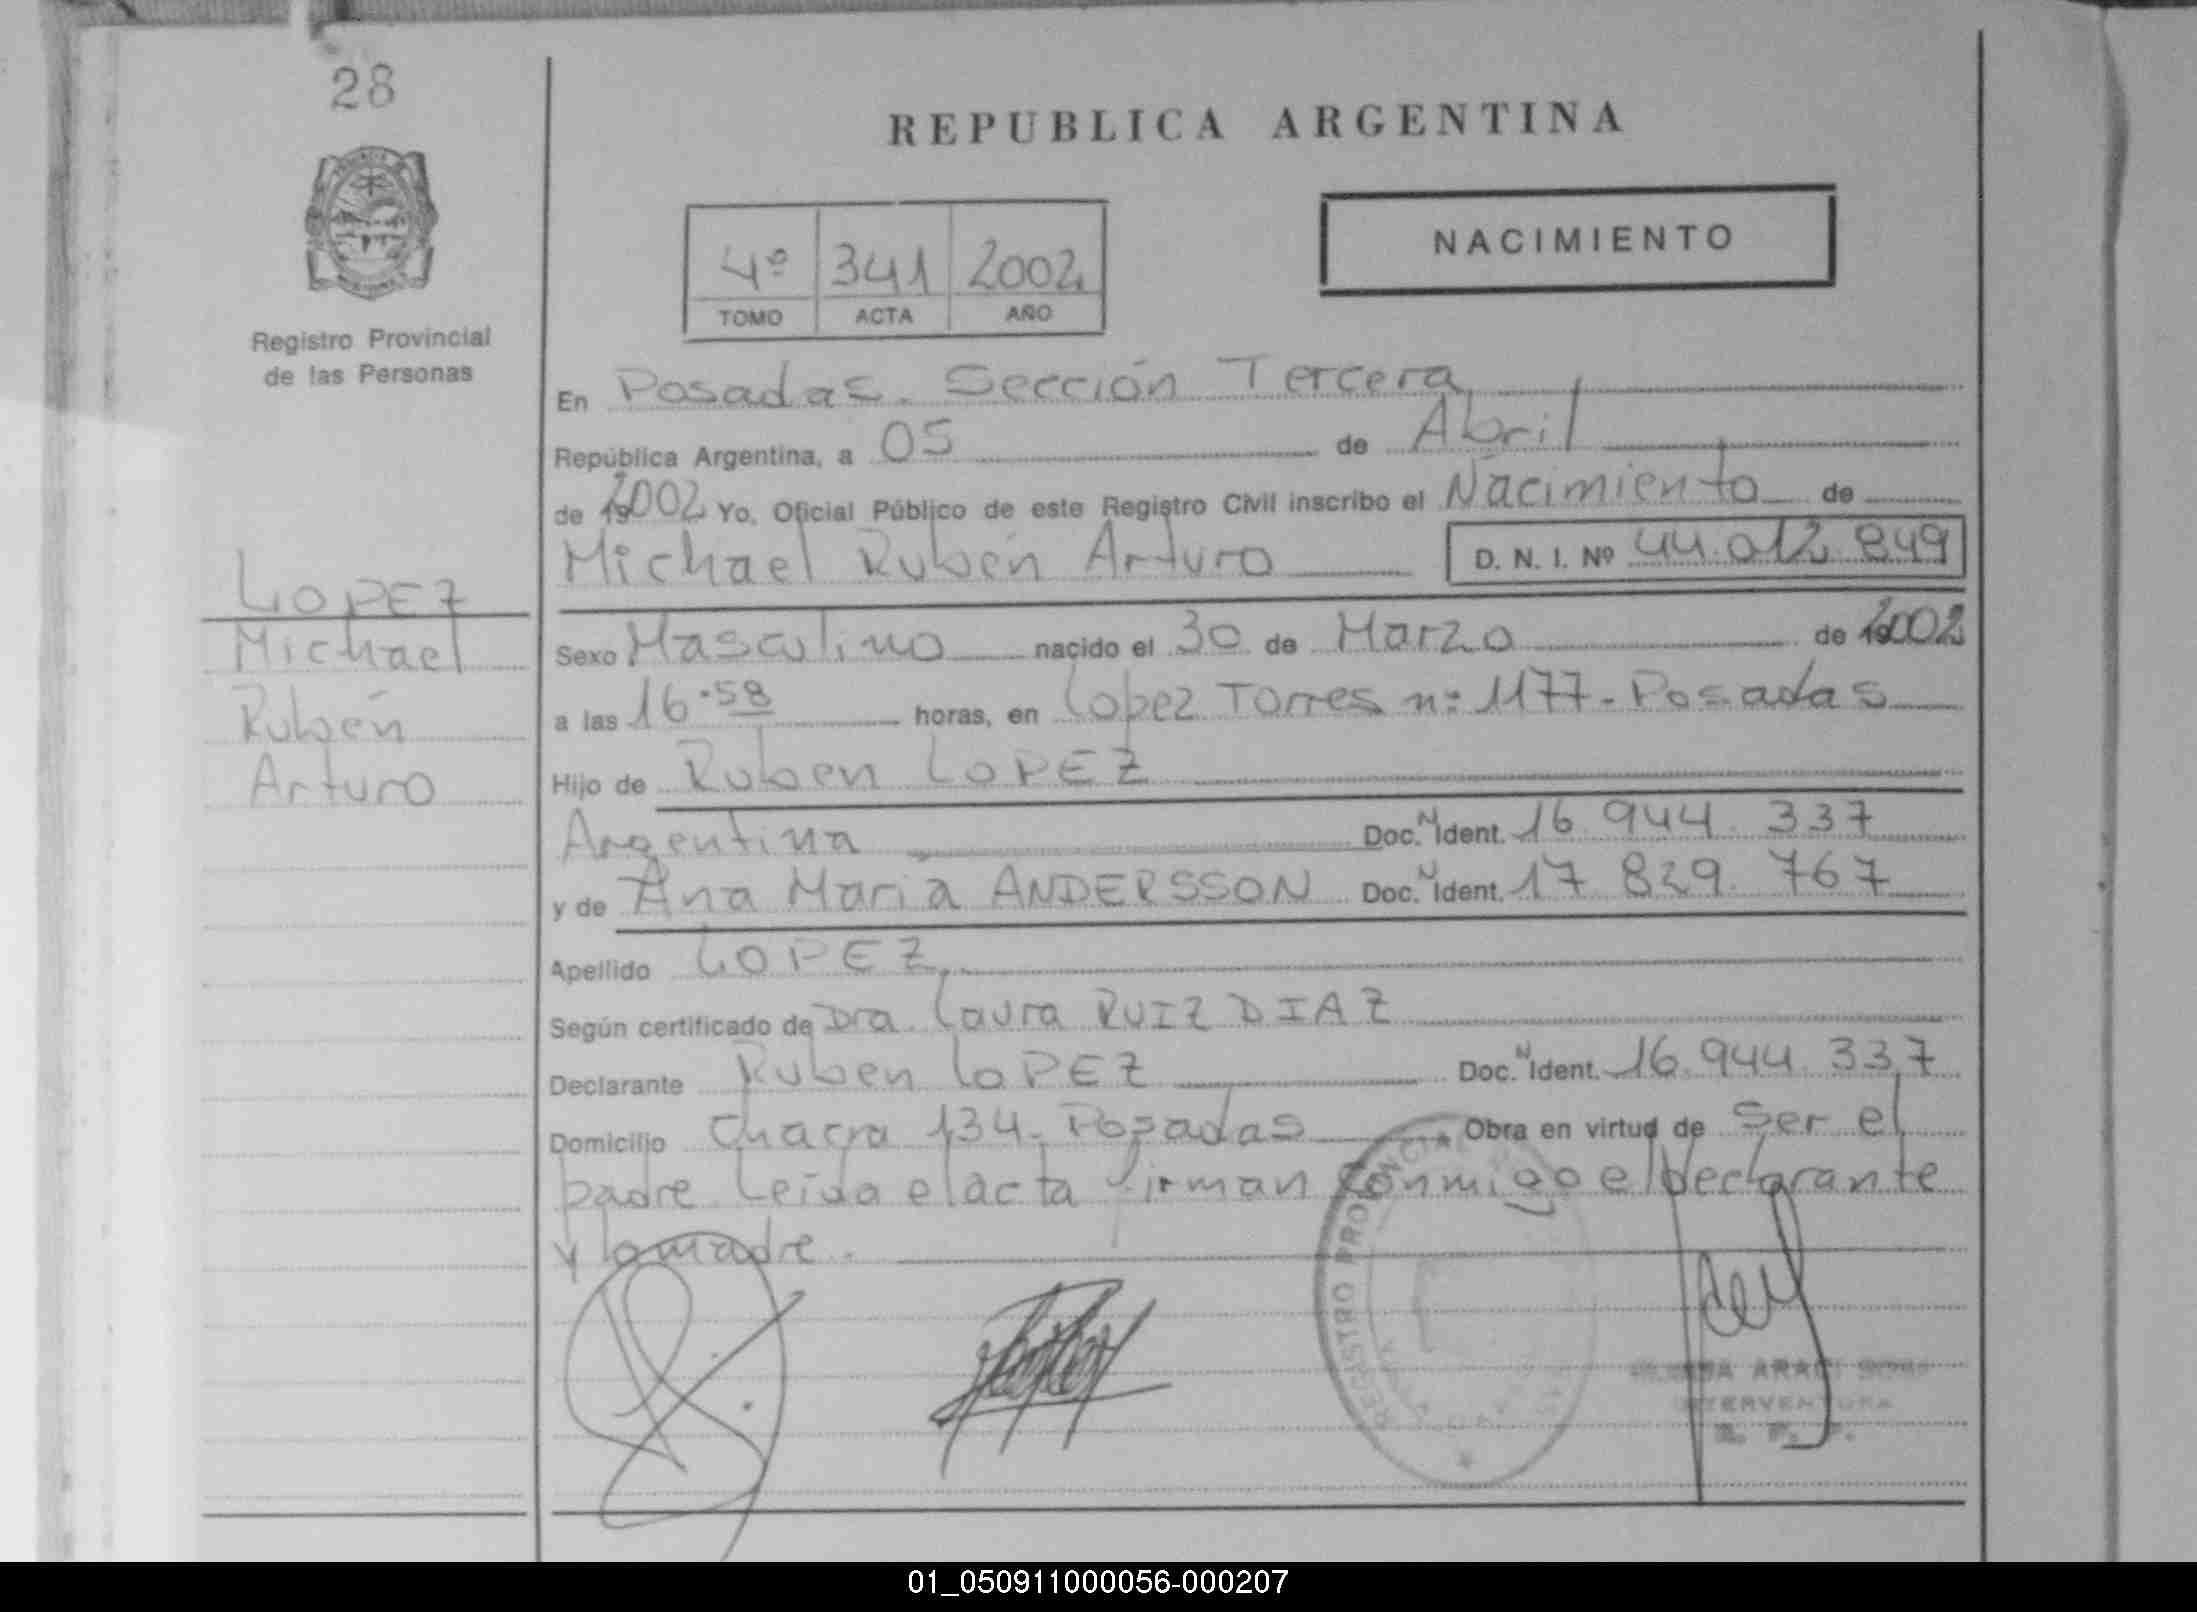 28
REPUBLICA ARGENTINA
NACIMIENTO
4º 341 2002
TOMO ACTA AÑO
Registro Provincial
de las Personas
En Posadas. Sección Tercera
República Argentina, a 05 de Abril
de 2002 Yo, Oficial Público de este Registro Civil inscribo el Nacimiento de
Michael Rubén Arturo D. N. I. Nº 44.012.849
LOPEZ
Michael
Rubén
Arturo
Sexo Masculino nacido el 30 de Marzo de 2002
a las 16.58 horas, en Lopez Torres nº 1177 - Posadas
Hijo de Ruben LOPEZ
Argentina Doc. N Ident. 16 944 337
y de Ana Maria ANDERSSON Doc. N Ident. 17 829 767
Apellido LOPEZ
Según certificado de Dra. Laura RUIZ DIAZ
Declarante Ruben LOPEZ Doc. N Ident. 16.944.337
Domicilio Chacra 134 - Posadas Obra en virtud de Ser el
padre. Leida el acta firman conmigo el declarante
y la madre.
REGISTRO PROVINCIAL
INTERVENTORA
01_050911000056-000207